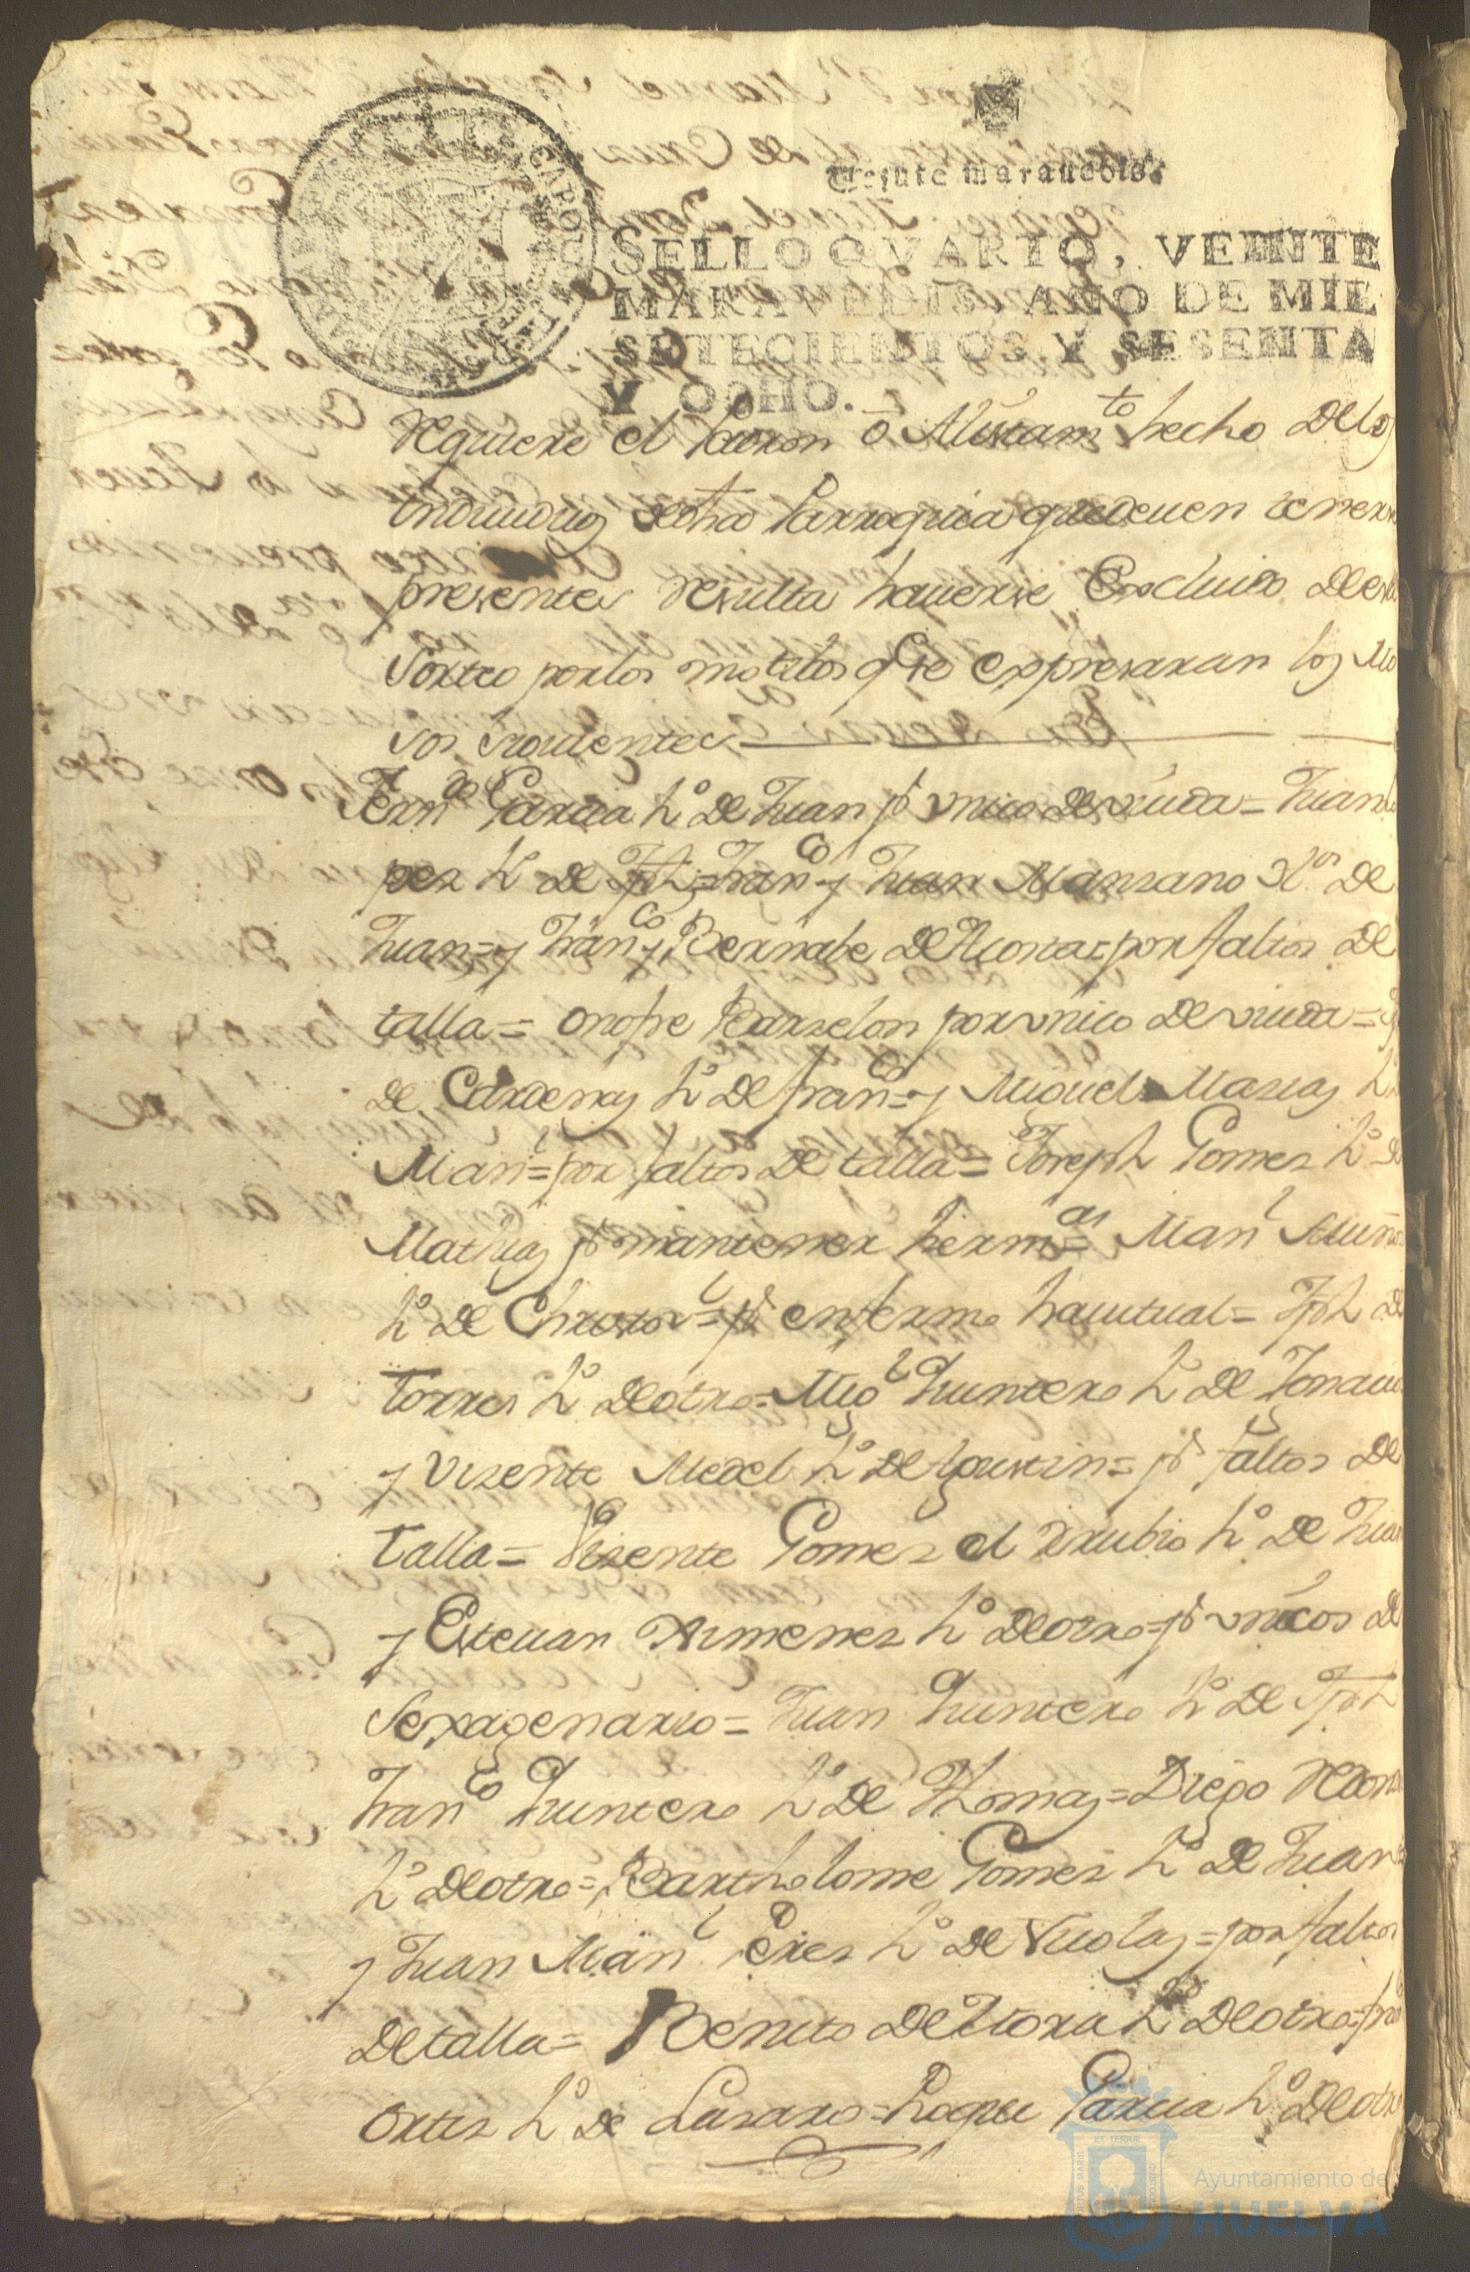 Veinte maravedis.
SELLO QVARTO, VEINTE
MARAVEDIS, AÑO DE MIL
SETECIENTOS Y SESENTA
Y OCHO.
requiere el Padron ô Alistam.to hecho de los
Individuos de dha Parroquia que deuen tenerse
presentes resulta hauerse Excluido de este
Sorteo por los motibos q.e se expresaran los Mo
sos siguientes
Fern.do Garcia h.o de Juan p.r vnico de viuda = Juan Lo
pez h.o de Jph = Fran.co y Juan Mansano H.os de
Juan = y Fran.co y Bernabe de Acosta = por faltos de
talla = Onofre Barzelon por vnico de viuda =
de Cardenas h.o de Fran.co = y Miguel Masias h.o
Man.l = por faltos de talla = Joseph Gomez h.o de
Mathias p.r mantener herm.as = Man.l Muños
h.o de Christov.l = p.r enfermo hauitual = Jph de
Torres h.o de otro = Mig.l Quintero h.o de Ignacio
y Visente Medel h.o de Agustin = p.r faltos de
talla = Visente Gomez el Rrubio h.o de Juan
y Esteuan Ximenez h.o de otro = p.r vnicos de
Sexagenario = Juan Quintero h.o de Jph
Fran.co Quintero h.o de Thomas = Diego
h.o de otro = Bartholome Gomez h.o de Juan
y Juan Man.l Perez h.o de Nicolas = por faltos
de talla = Benito de Mora h.o de otro =
Ortiz h.o de Lasaro = Roque Garcia h.o de otro
ET TERRÆ
Ayuntamiento de
HUELVA